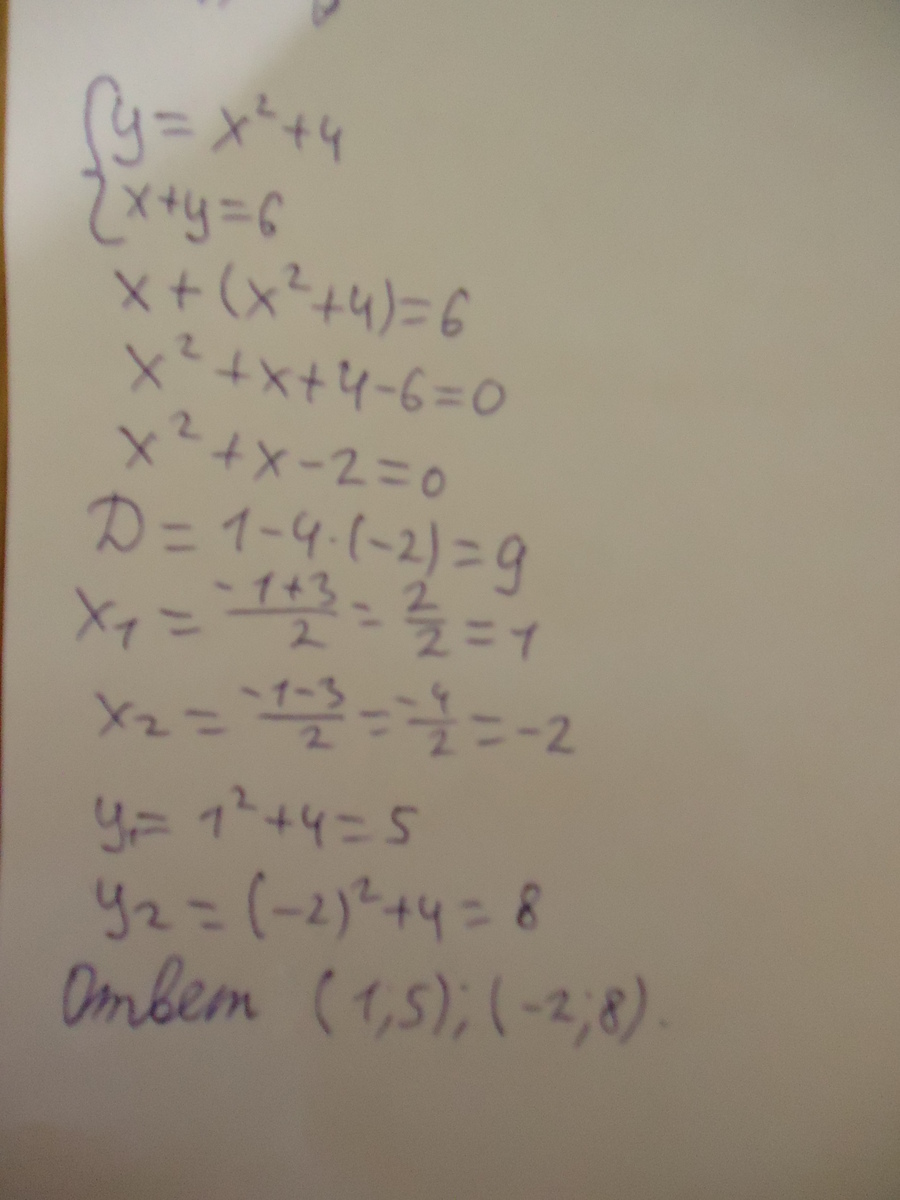 y = x² + 4
x + y = 6
x + (x² + 4) = 6
x² + x + 4 - 6 = 0
x² + x - 2 = 0
D = 1 - 4 · (-2) = 9
x₁ = (-1+3)/2 = 2/2 = 1
x₂ = (-1-3)/2 = -4/2 = -2
y₁ = 1² + 4 = 5
y₂ = (-2)² + 4 = 8
Ответ (1;5); (-2;8).